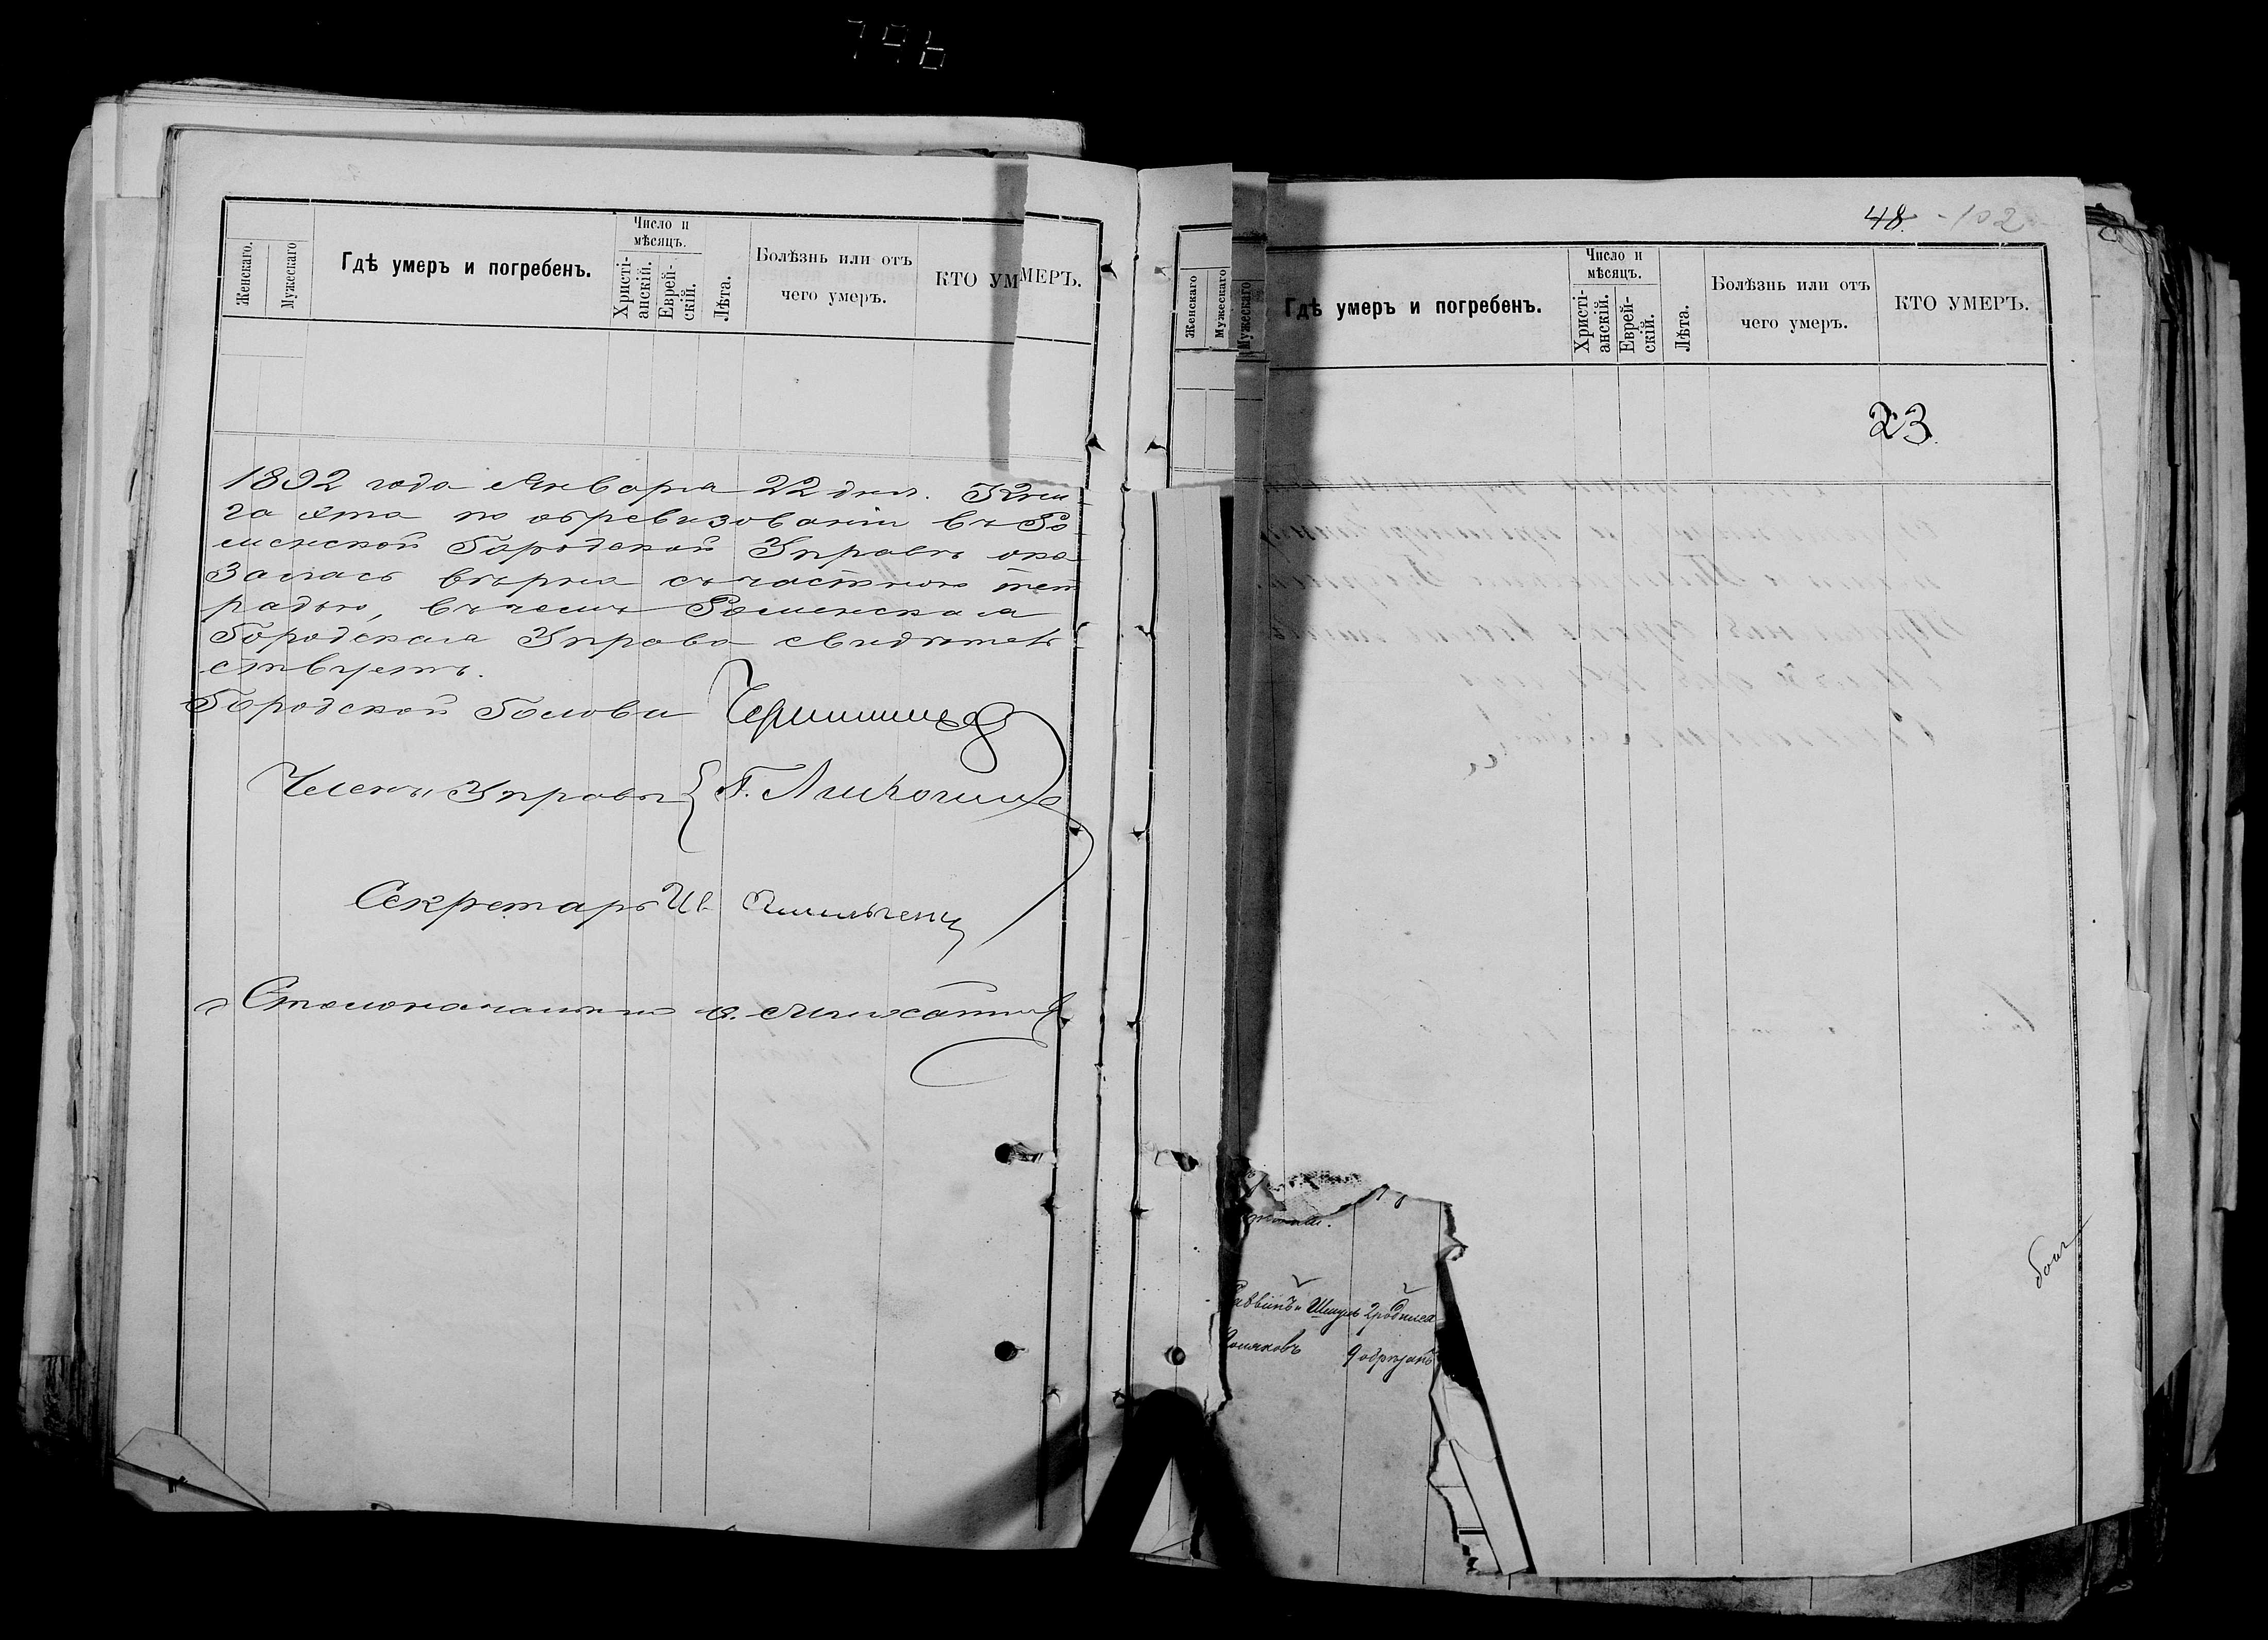 Женскаго.
Мужескаго
Гдѣ умеръ и погребенъ.
Число и
мѣсяцъ.
Христі-
анскій.
Еврей-
скій.
Лѣта.
Болѣзнь или отъ
чего умеръ.
КТО УМ
МЕРЪ.
1892 года Января 22 дня. Кни
га эта по обревизованіи въ Ро
менской Городской Управѣ ока
залась вѣрна съ частною тет
радью, въ чемъ Роменская
Городская Управа свидѣтель
ствуетъ.
Городской Голова
Члены Управы
Секретарь Ив
Столоначальникъ
48. -102
Женскаго
Мужескаго
Мужескаго
Гдѣ умеръ и погребенъ.
Число и
мѣсяцъ.
Христі-
анскій.
Еврей-
скій.
Лѣта.
Болѣзнь или отъ
чего умеръ.
КТО УМЕРЪ.
23.
2 родился
9 обрѣзанъ